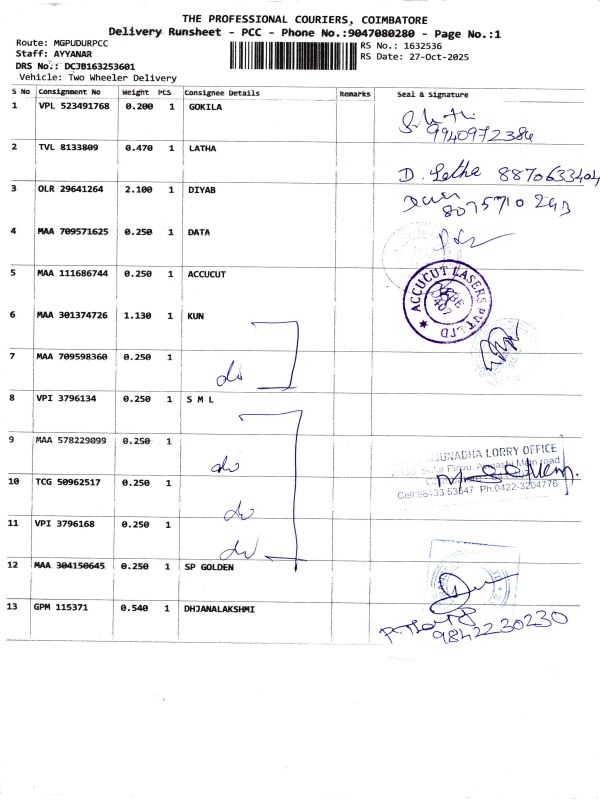 THE PROFESSIONAL COURIERS, COIMBATORE
Delivery Runsheet - PCC - Phone No.:9047080280 - Page No.:1
Route: MGPUDURPCC
Staff: AYYANAR
DRS No.: DCJB163253601
Vehicle: Two Wheeler Delivery
RS No.: 1632536
RS Date: 27-Oct-2025
S No Consignment No Weight PCS Consignee Details Remarks Seal & Signature
1 VPL 523491768 0.200 1 GOKILA
9940972384
2 TVL 8133809 0.470 1 LATHA
D. Letha 8870633404
3 OLR 29641264 2.100 1 DIYAB
8075710293
4 MAA 709571625 0.250 1 DATA
5 MAA 111686744 0.250 1 ACCUCUT
ACCUCUT LASERS PVT LTD
6 MAA 301374726 1.130 1 KUN
7 MAA 709598360 0.250 1
do
8 VPI 3796134 0.250 1 S M L
9 MAA 578229099 0.250 1
do
LORRY OFFICE
10 TCG 50962517 0.250 1
Cell:98433 53647 Ph:0422-3204776
do
11 VPI 3796168 0.250 1
do
12 MAA 304150645 0.250 1 SP GOLDEN
13 GPM 115371 0.540 1 DHJANALAKSHMI
9842230230